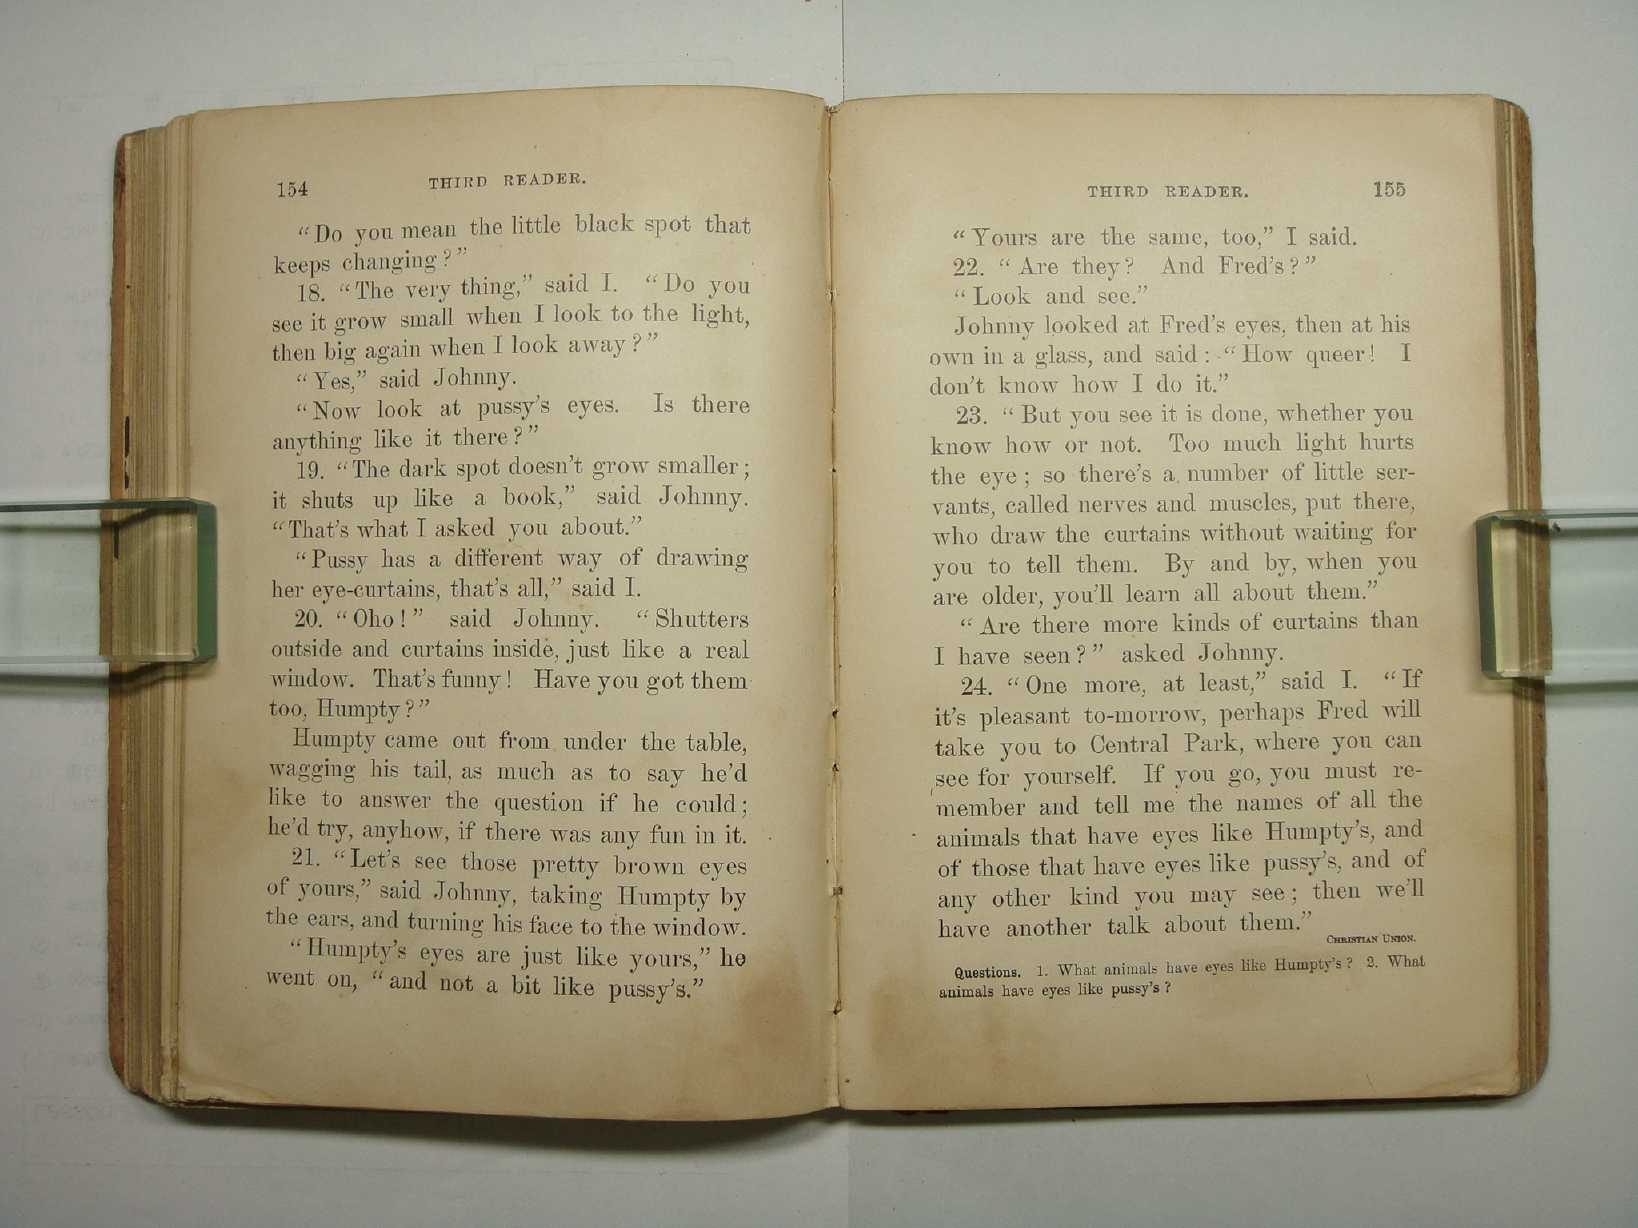 154
THIRD READER.
“Do you mean the little black spot that
keeps changing?”
18. “The very thing,” said I. “Do you
see it grow small when I look to the light,
then big again when I look away?”
“Yes,” said Johnny.
“Now look at pussy’s eyes. Is there
anything like it there?”
19. “The dark spot doesn’t grow smaller;
it shuts up like a book,” said Johnny.
“That’s what I asked you about.”
“Pussy has a different way of drawing
her eye-curtains, that’s all,” said I.
20. “Oho!” said Johnny. “Shutters
outside and curtains inside, just like a real
window. That’s funny! Have you got them
too, Humpty?”
Humpty came out from under the table,
wagging his tail, as much as to say he’d
like to answer the question if he could;
he’d try, anyhow, if there was any fun in it.
21. “Let’s see those pretty brown eyes
of yours,” said Johnny, taking Humpty by
the ears, and turning his face to the window.
“Humpty’s eyes are just like yours,” he
went on, “and not a bit like pussy’s.”
THIRD READER.
155
“Yours are the same, too,” I said.
22. “Are they? And Fred’s?”
“Look and see.”
Johnny looked at Fred’s eyes, then at his
own in a glass, and said: “How queer! I
don’t know how I do it.”
23. “But you see it is done, whether you
know how or not. Too much light hurts
the eye; so there’s a number of little ser-
vants, called nerves and muscles, put there,
who draw the curtains without waiting for
you to tell them. By and by, when you
are older, you’ll learn all about them.”
“Are there more kinds of curtains than
I have seen?” asked Johnny.
24. “One more, at least,” said I. “If
it’s pleasant to-morrow, perhaps Fred will
take you to Central Park, where you can
see for yourself. If you go, you must re-
member and tell me the names of all the
animals that have eyes like Humpty’s, and
of those that have eyes like pussy’s, and of
any other kind you may see; then we’ll
have another talk about them.”
CHRISTIAN UNION.
Questions. 1. What animals have eyes like Humpty’s? 2. What
animals have eyes like pussy’s?